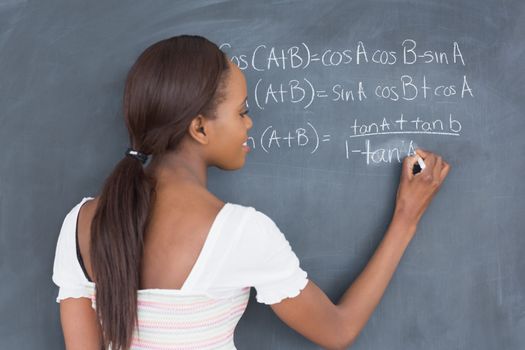 Cos(A+B)=cosA cosB-sinA
(A+B)=sinA cosB+cosA
n(A+B)=
tanA+tanb
1-tan